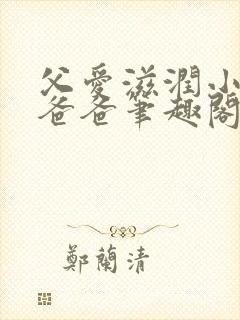 父愛滋潤小
爸爸筆趣閣
鄭蘭清